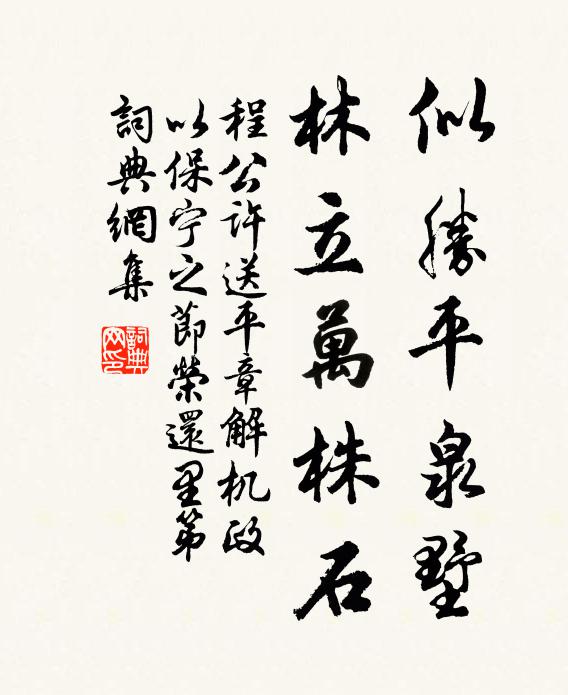 似勝平泉墅
林立萬株石
程公許送平章解机政
以保宁之節榮還里第
詞典網集
詞典网印